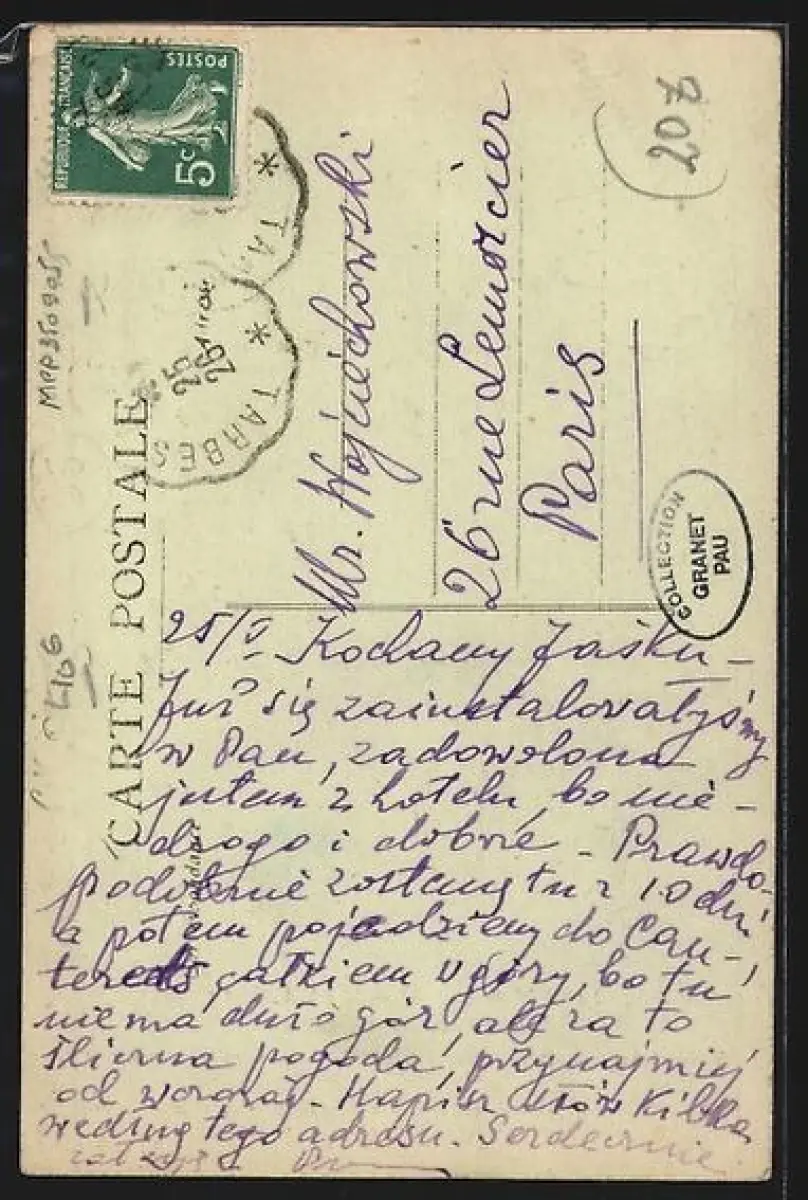 207
RÉPUBLIQUE FRANÇAISE
POSTES
5c
* TA
* TARBES
25
26
MPP3509055
CARTE POSTALE
Mr. Wojciechowski
26 rue Lemercier
Paris
COLLECTION
GRANET
PAU
25/V Kochany Jaśku –
Już się zainstalowałyśmy
w Pau, zadowolona
jestem z hotelu, bo nie-
drogo i dobrze – Prawdo-
podobnie zostaniemy tu z 10 dni
a potem pojedziemy do Cau-
terets całkiem w góry, bo tu
niema dużo gór, ale za to
śliczna pogoda, przynajmniej
od wczoraj – Napisz słów kilka
według tego adresu. Serdecznie